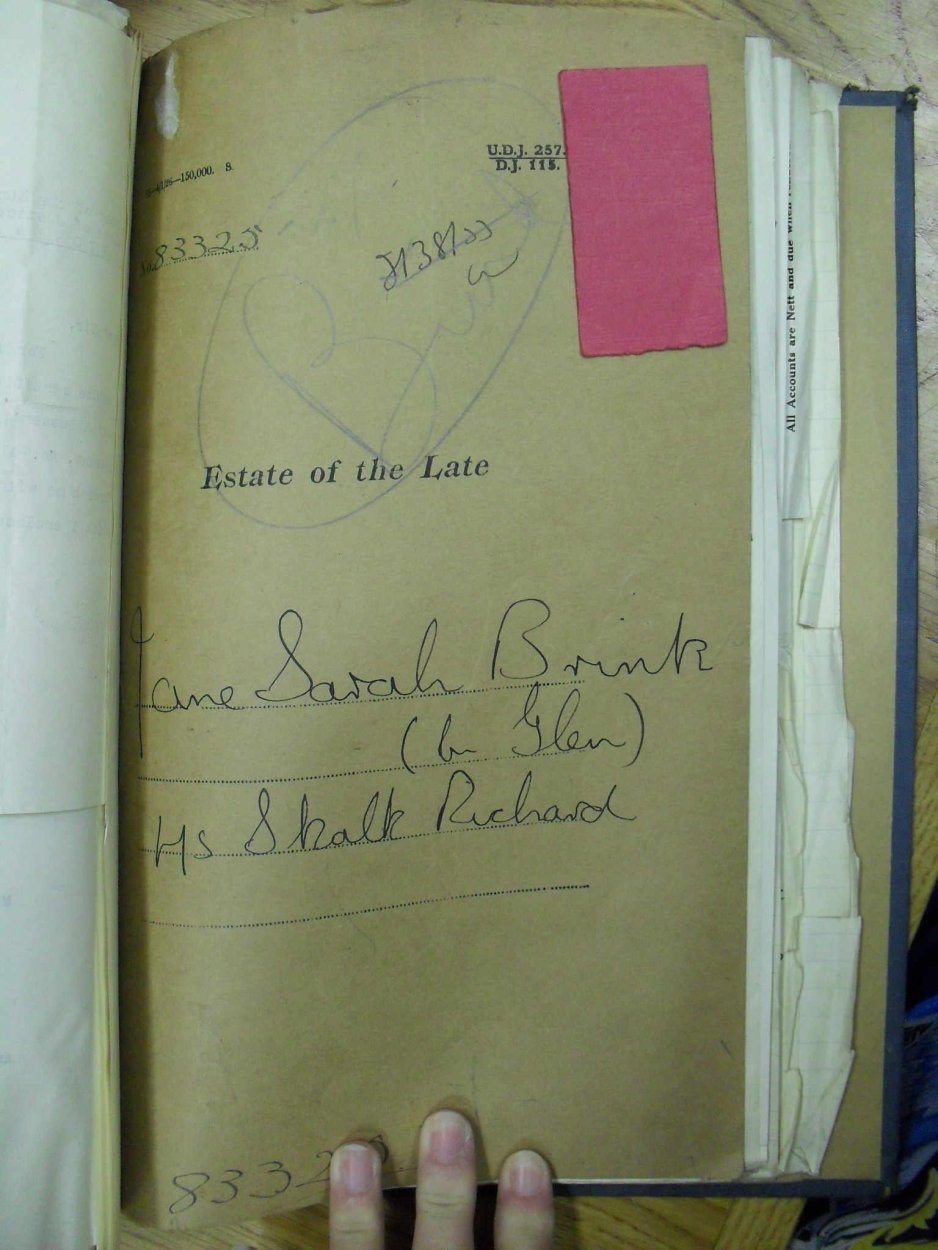 150,000. S.
U.D.J. 257.
D.J. 115.
No. 83325
Estate of the Late
Jane Sarah Brink
(bn Glen)
H/s Skalk Richard
8332
All Accounts are Nett and due when